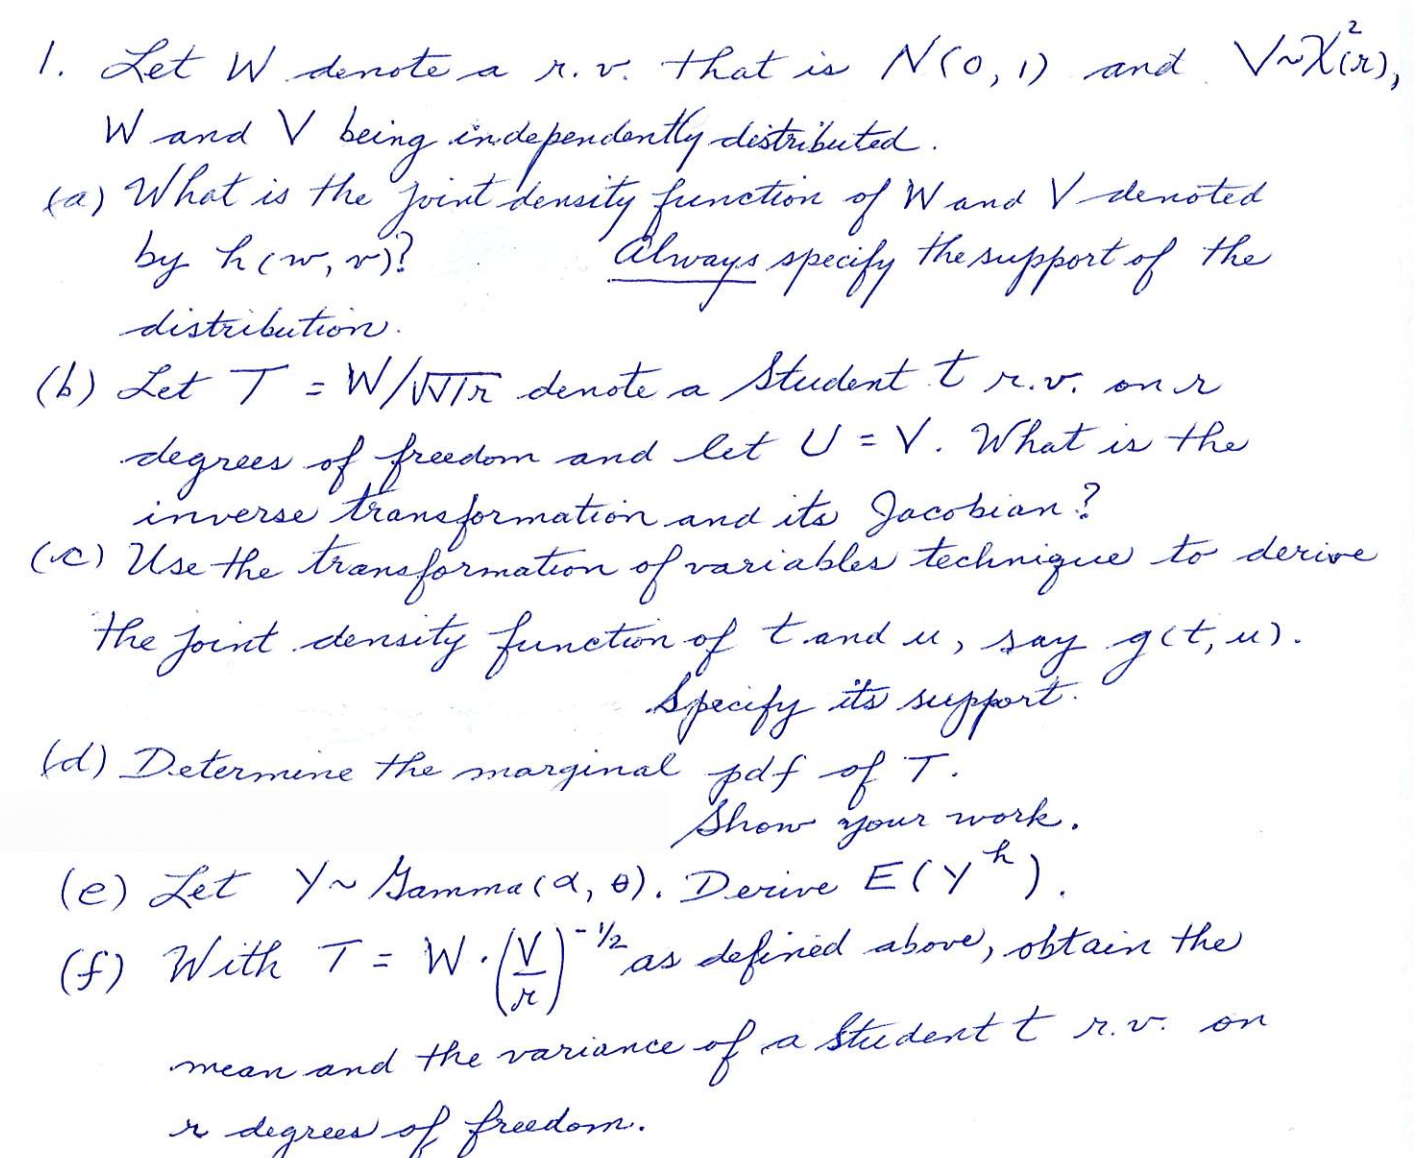 1. Let W denote a r.v. that is N(0,1) and V~χ²(r),
W and V being independently distributed.
(a) What is the joint density function of W and V denoted
by h(w,v)? Always specify the support of the
distribution.
(b) Let T = W/√V/r denote a Student t r.v. on r
degrees of freedom and let U = V. What is the
inverse transformation and its Jacobian?
(c) Use the transformation of variables technique to derive
the joint density function of t and u, say g(t,u).
Specify its support.
(d) Determine the marginal pdf of T.
Show your work.
(e) Let Y~Gamma(α, θ). Derive E(Y^h).
(f) With T = W·(V/r)^-1/2 as defined above, obtain the
mean and the variance of a Student t r.v. on
r degrees of freedom.